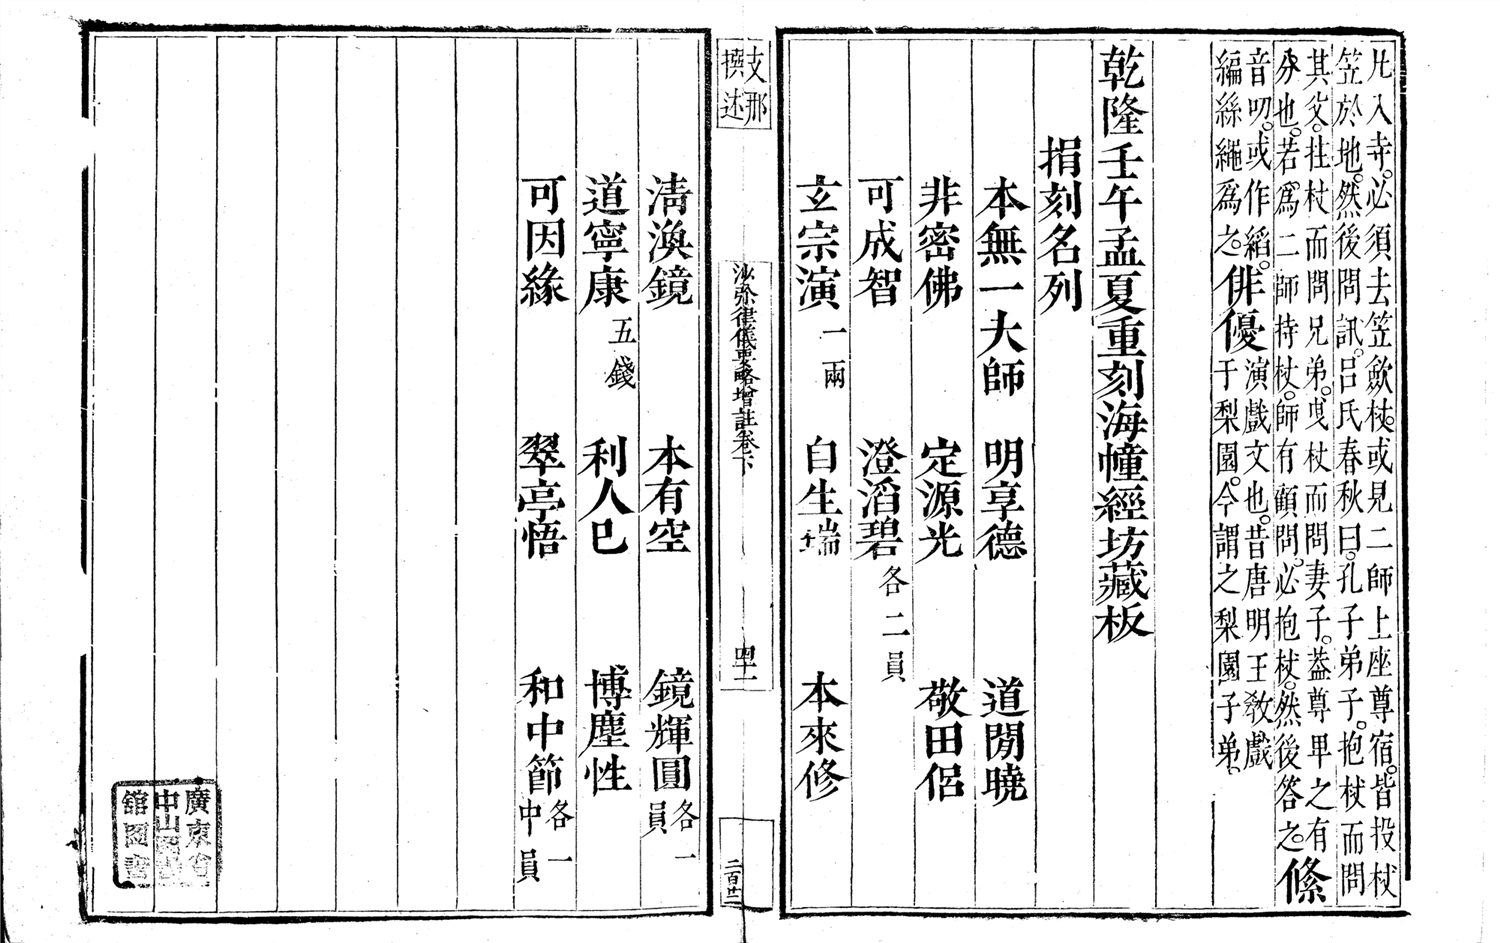 凡入寺。必須去笠歛杖。或見二師上座尊宿。皆投杖
笠於地。然後問訊。呂氏春秋曰。孔子弟子。抱杖而問
其父。拄杖而問兄弟。曳杖而問妻子。蓋尊卑之有
分也。若爲二師持杖。師有顧問。必抱杖。然後答之。絛
音叨。或作縚。
編絲繩爲之。俳優演戲文也。昔唐明王敎戲
于梨園。今謂之梨園子弟。
乾隆壬午孟夏重刻海幢經坊藏板
捐刻名列
本無一大師 明享德 道閒曉
非密佛 定源光 敬田侶
可成智 澄滔碧各二員
玄宗演一兩 自生端 本來修
支那撰述
沙彌律儀要略增註卷下
四十一
二百廿二
清渙鏡 本有空 鏡輝圓各一員
道寧康五錢 利人巳 博塵性
可因緣 翠亭悟 和中節各一中員
廣東省
中山圖書
舘圖書